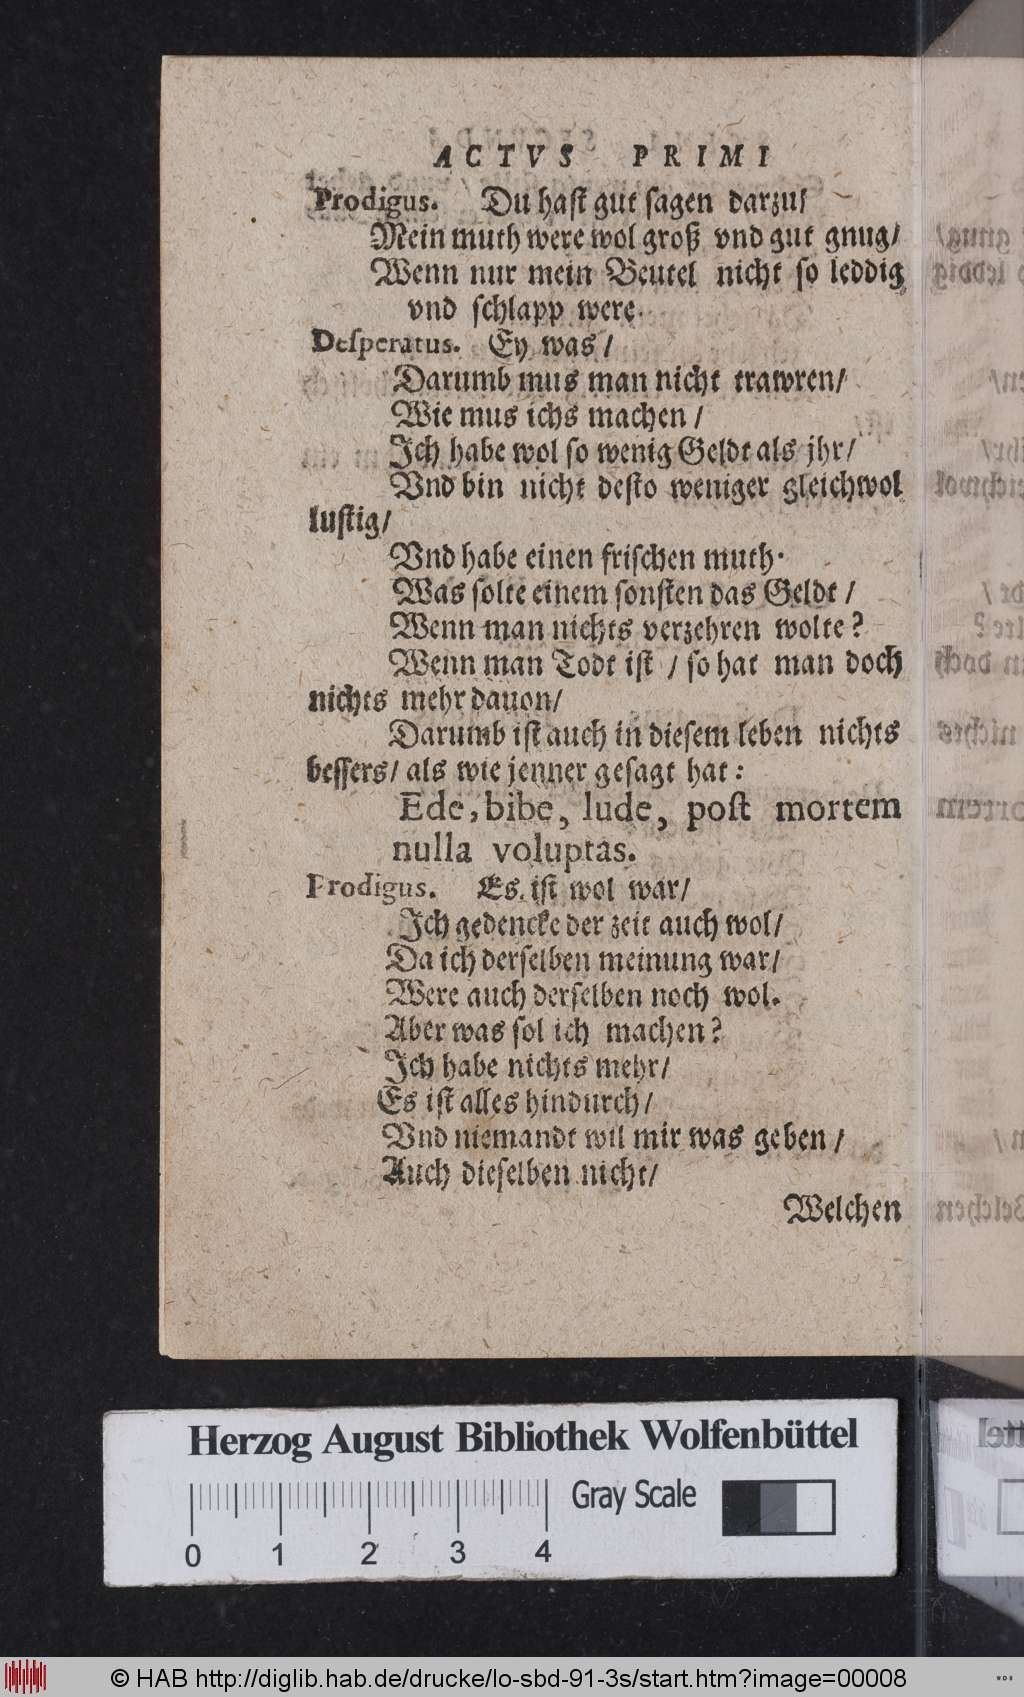 ACTVS PRIMI
Prodigus. Du hast gut sagen darzu/
Mein muth were wol groß vnd gut gnug/
Wenn nur mein Beutel nicht so leddig
vnd schlapp were.
Desperatus. Ey was/
Darumb mus man nicht trawren/
Wie mus ichs machen/
Ich habe wol so wenig Geldt als jhr/
Vnd bin nicht desto weniger gleichwol
lustig/
Vnd habe einen frischen muth.
Was solte einem sonsten das Geldt/
Wenn man nichts verzehren wolte?
Wenn man Todt ist/ so hat man doch
nichts mehr dauon/
Darumb ist auch in diesem leben nichts
bessers/ als wie jenner gesagt hat:
Ede, bibe, lude, post mortem
nulla voluptas.
Prodigus. Es ist wol war/
Ich gedencke der zeit auch wol/
Da ich derselben meinung war/
Were auch derselben noch wol.
Aber was sol ich machen?
Ich habe nichts mehr/
Es ist alles hindurch/
Vnd niemandt wil mir was geben/
Auch dieselben nicht/
Welchen
Herzog August Bibliothek Wolfenbüttel
Gray Scale
0 1 2 3 4
© HAB http://diglib.hab.de/drucke/lo-sbd-91-3s/start.htm?image=00008